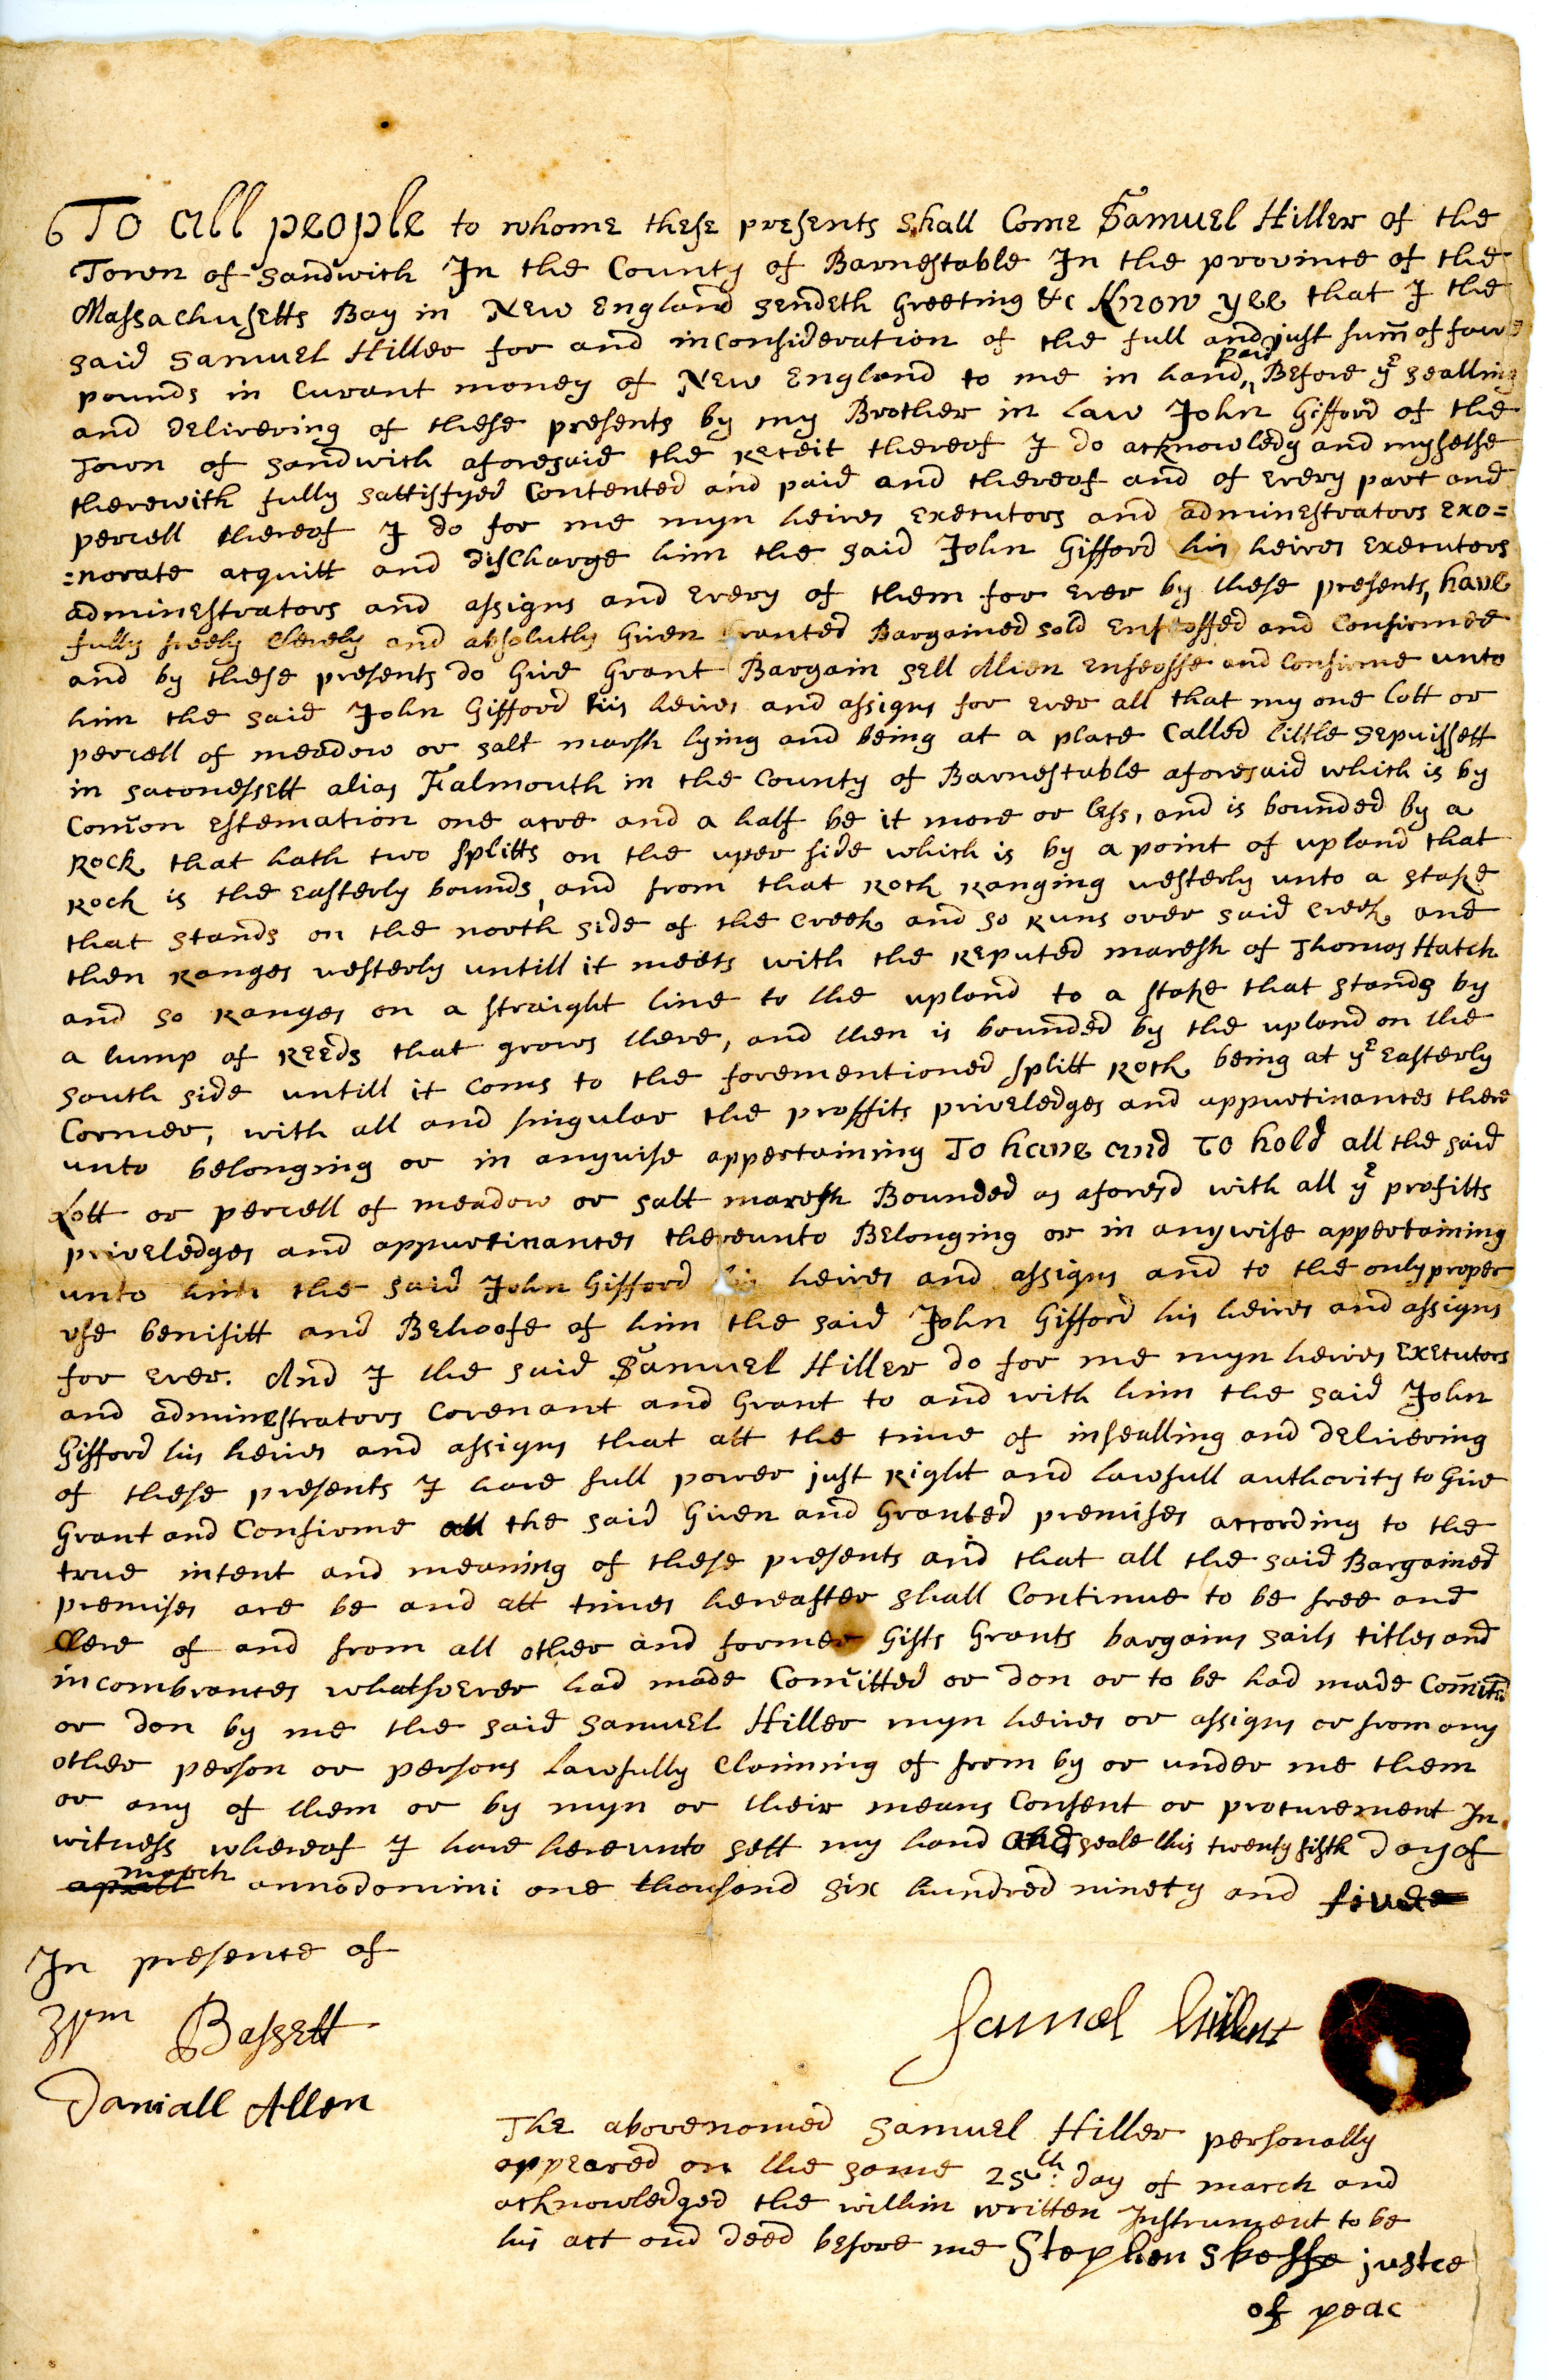 To all people to whome these presents shall Come Samuel Hiller of the
Town of sandwich In the County of Barnestable In the province of the
Massachusetts Bay in New England sendeth Greeting &c Know yee that I the
said Samuel Hiller for and inConsideration of the full and just sum̄ of four
pounds in Curant money of New England to me in hand paid Before yᵉ sealling
and delivering of these presents by my Brother in law John Gifford of the
Town of sandwich aforesaid the Receit thereof I do acknowledg and myselfe
therewith fully sattisfyed Contented and paid and thereof and of every part and
percell thereof I do for me myn heires Executors and adminestrators exo=
=norate acquitt and disCharge him the said John Gifford his heires executors
adminestrators and assigns and every of them for ever by these presents, have
fully freely Clerely and absolutly Given Granted Bargained sold Enfeoffed and Confirmed
and by these presents do Give Grant Bargain sell Alien enfeoffe and Confirme unto
him the said John Gifford his heires and assigns for ever all that my one lott or
percell of meadow or salt marsh lying and being at a place Called little sepuissett
in saconessett alias Falmouth in the County of Barnestable aforesaid which is by
Com̄on estemation one acre and a half be it more or less, and is bounded by a
Rock that hath two splitts on the uper side which is by a point of upland that
Rock is the easterly bounds, and from that Rock Ranging westerly unto a stake
that stands on the north side of the creek and so Runs over said creek and
then Ranges westerly untill it meets with the Reputed maresh of Thomas Hatch
and so Ranges on a straight line to the upland to a stake that stands by
a lump of Reeds that grows there, and then is bounded by the upland on the
south side untill it coms to the forementioned splitt Rock being at yᵉ easterly
Corner, with all and singular the proffits priveledges and appurtinances there
unto belonging or in anywise appertaining To have and To hold all the said
Lott or percell of meadow or salt maresh Bounded as aforesd with all yᵉ profitts
priveledges and appurtinances thereunto Belonging or in anywise appertaining
unto him the said John Gifford his heires and assigns and to the only proper
use benifitt and Behoofe of him the said John Gifford his heires and assigns
for ever. And I the said Samuel Hiller do for me myn heires Executors
and adminestrators Covenant and Grant to and with him the said John
Gifford his heires and assigns that att the time of insealling and delivering
of these presents I have full power just Right and lawfull authority to Give
Grant and Confirme all the said Given and Granted premises according to the
true intent and meaning of these presents and that all the said Bargained
premises are be and att times hereafter shall Continue to be free and
Clere of and from all other and former Gifts Grants bargains sails titles and
incombrances whatsoever had made Com̄itted or don or to be had made Com̄itd
or don by me the said Samuel Hiller myn heires or assigns or from any
other person or persons Lawfully Claiming of from by or under me them
or any of them or by myn or their means Consent or procurement In
witness whereof I have hereunto sett my hand and seale this twenty fifth day of
aprill march annodomini one thousand six hundred ninety and five
In presence of
Wm Bassett
Daniall Allen
Samuel Hiller
The abovenamed Samuel Hiller personally
appeared on the same 25th: day of march and
acknowledged the within written Instrument to be
his act and deed before me Stephen Skeffe justce
of peac